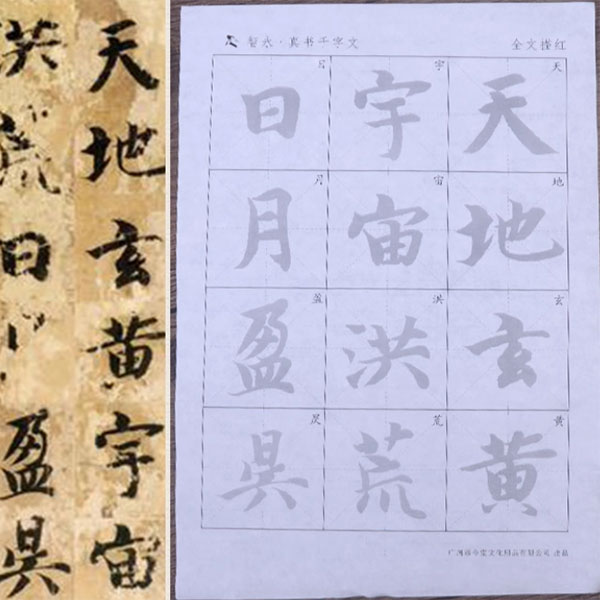 天地玄黄宇宙
洪荒日月盈昃
智永·真书千字文
全文描红
天地玄黄
宇宙洪荒
日月盈昃
天
地
玄
黄
宇
宙
洪
荒
日
月
盈
昃
文化用品有限公司